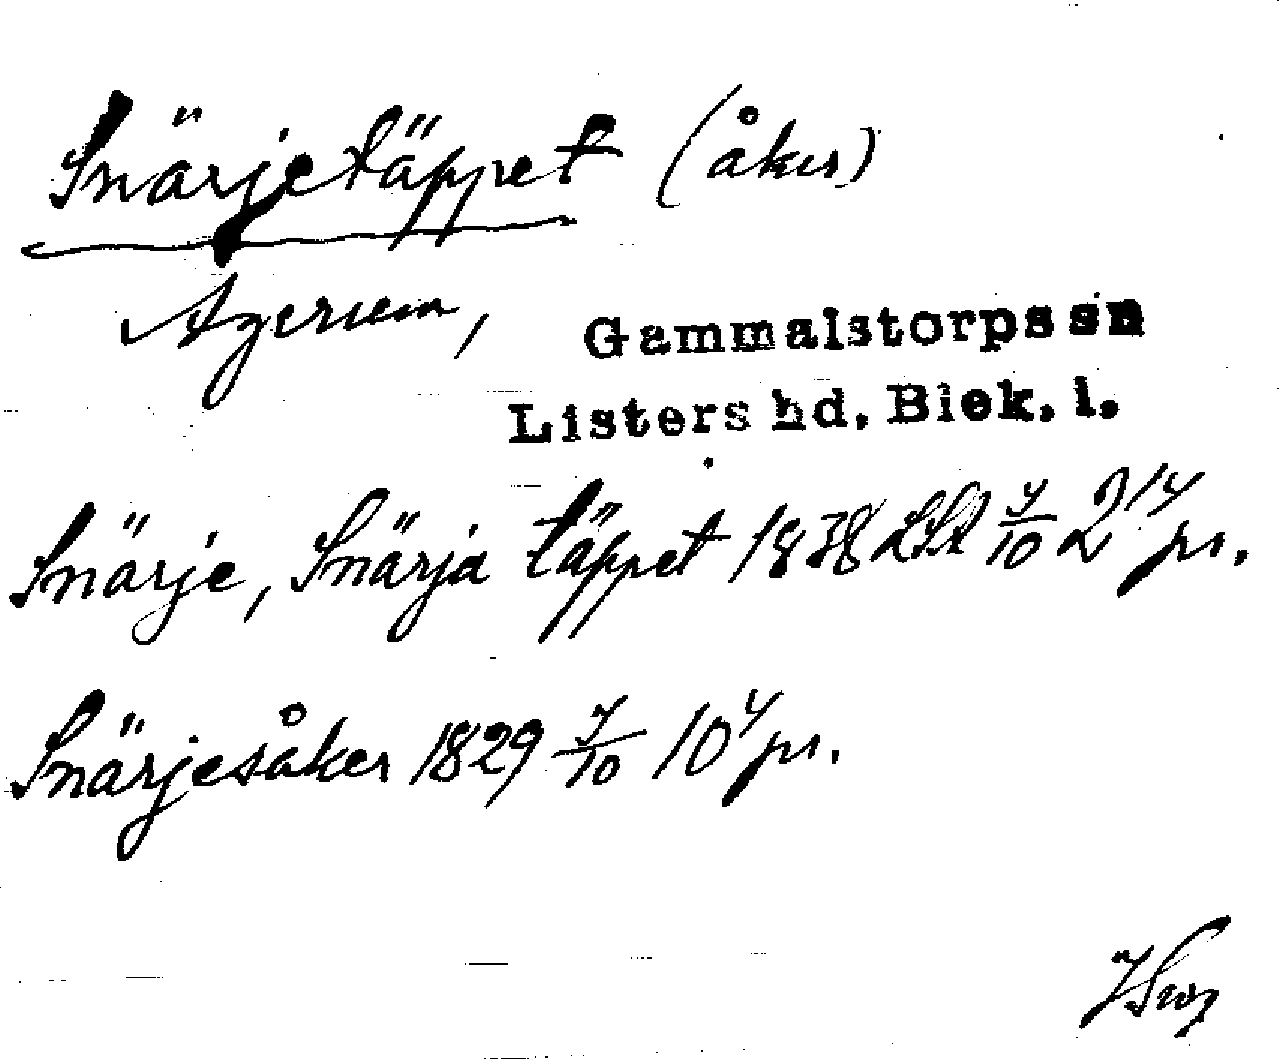 Snärjetäppet (åker)
Agerum,
Gammalstorps sn
Listers hd. Blek. l.
Snärje, Snärja täppet 1838 LSA 7/10 2 14 pr.
Snärjesåker 1829 7/10 10 4 pr.